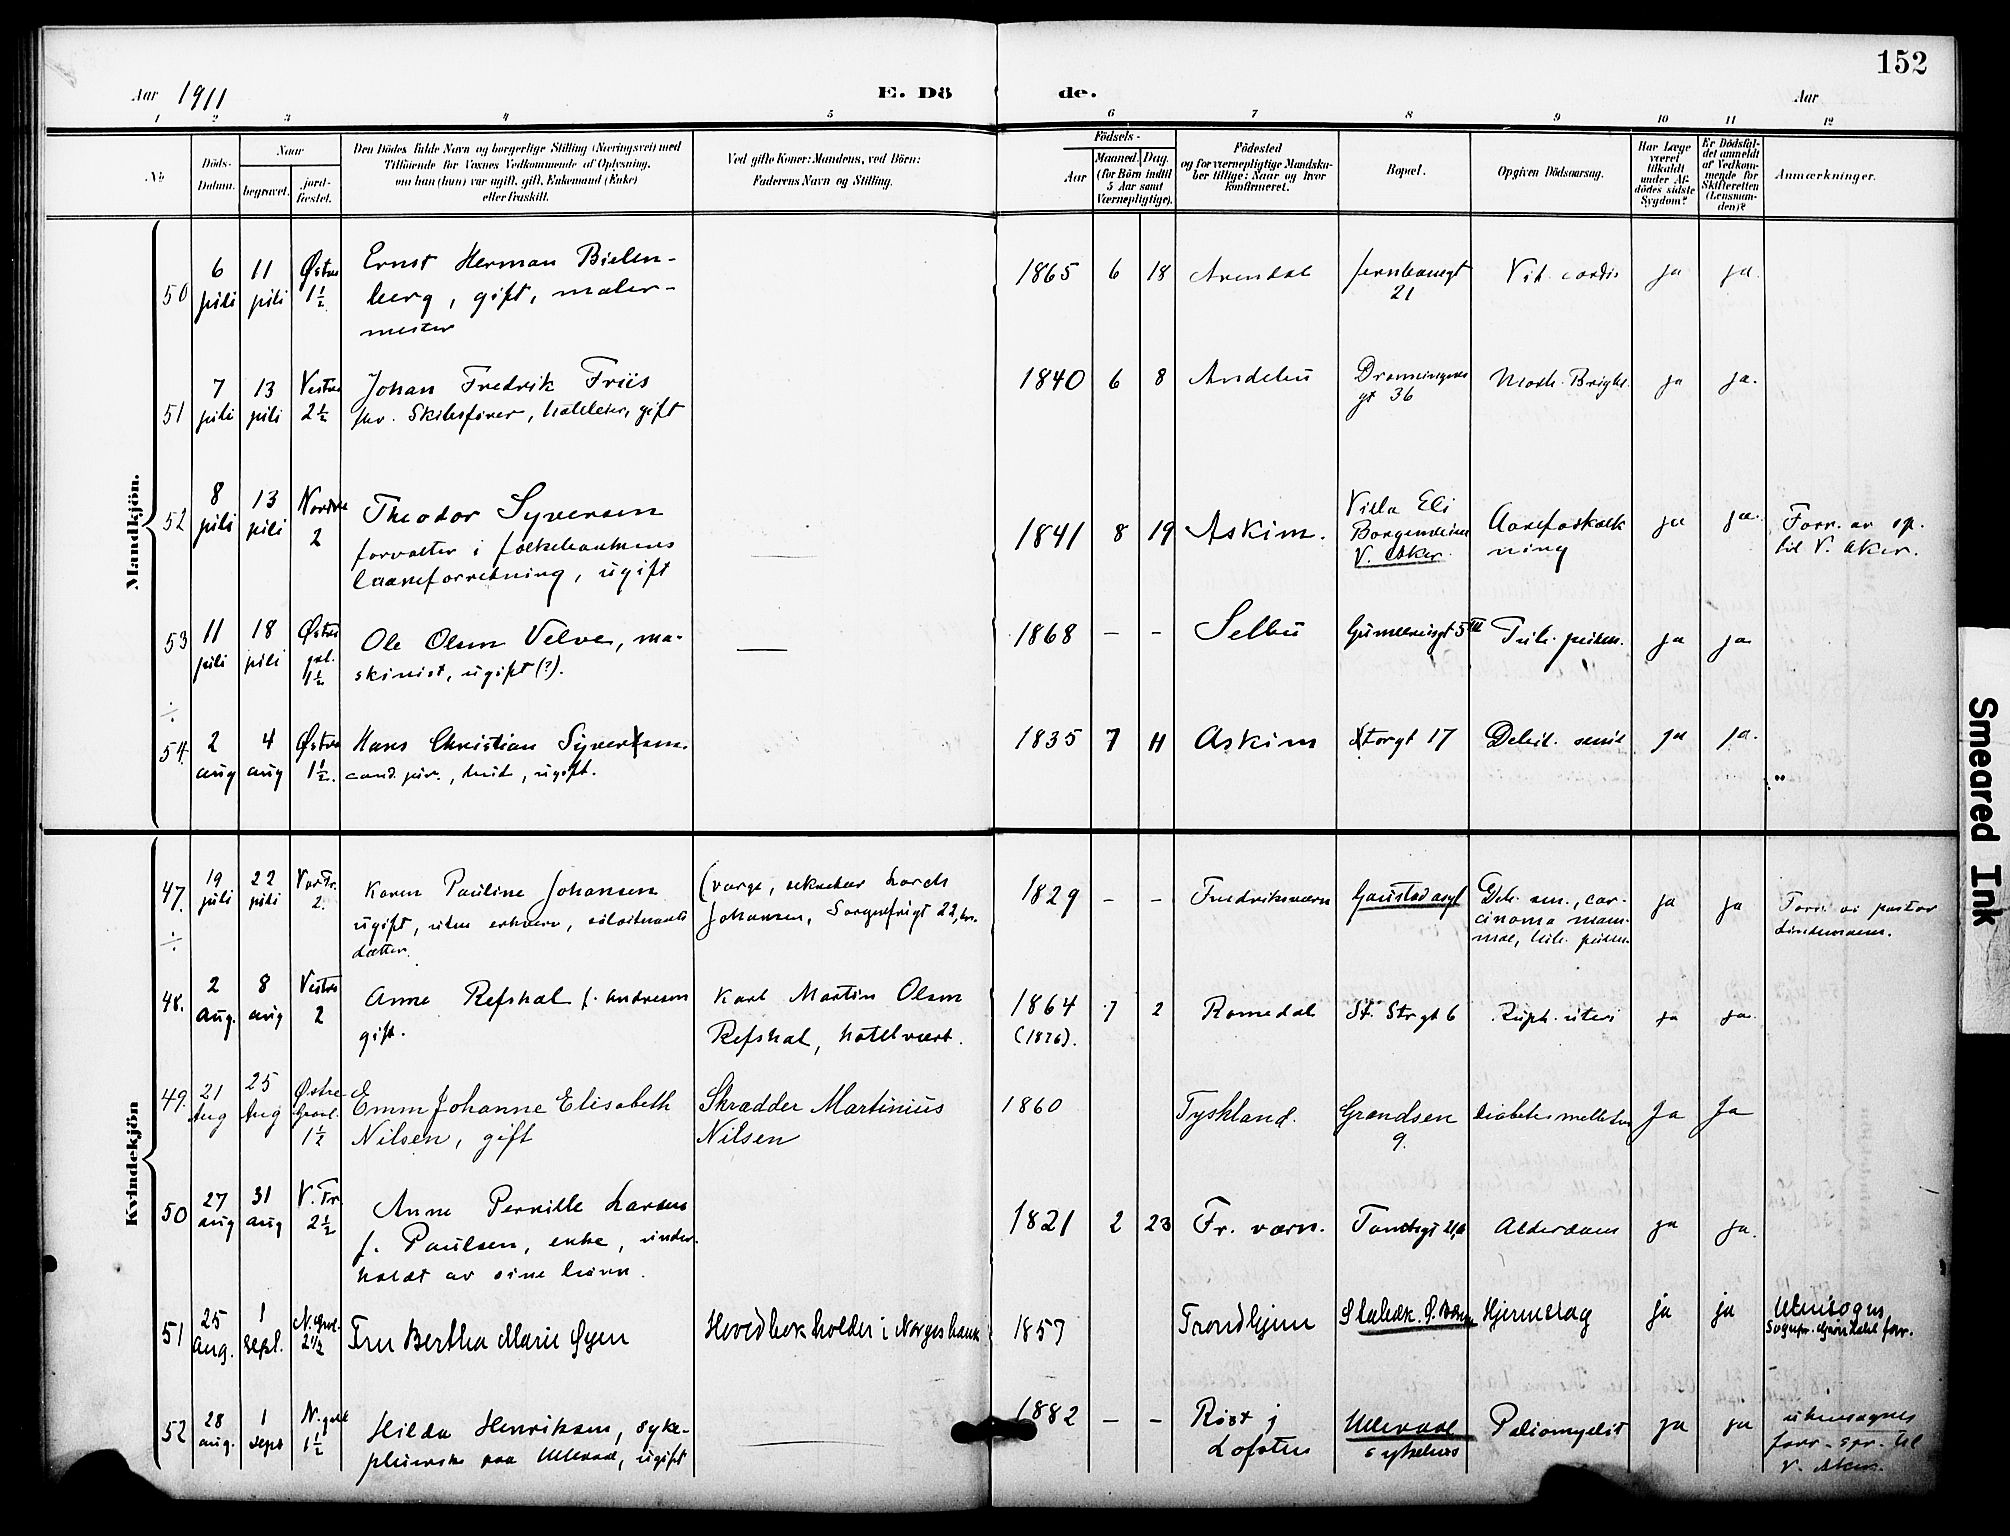 152
Aar 1911
E. Dö
de.
Aar
1 2 3 4 5 6 7 8 9 10 11 12
No
Döds-
Datum.
Naar
begravet.
jord-
fæstet.
Den Dödes fulde Navn og borgerlige Stilling (Næringsvei) med
Tilföiende for Voxnes Vedkommende af Oplysning,
om han (hun) var ugift, gift, Enkemand (Enke)
eller fraskilt.
Ved gifte Koner: Mandens, ved Börn:
Faderens Navn og Stilling.
Födsels-
Aar
Maaned. Dag.
(for Börn indtil
5 Aar samt
Værnepligtige).
Födested
og for værnepligtige Mandska-
ber tillige: Naar og hvor
konfirmeret.
Bopæl.
Opgiven Dödsaarsag.
Har Læge
været
tilkaldt
under Af-
dödes sidste
Sygdom?
Er Dödsfal-
det anmeldt
af Vedkom-
mende for
Skifteretten
(Lensman-
den)?
Anmærkninger.
Mandkjön.
50 6 juli 11 juli Østre 1½
Ernst Herman Bielen-
berg, gift, maler-
mester
1865 6 18 Arendal Jernbanegt 21 Vit. cordis ja ja.
51 7 juli 13 juli Vestre 2½
Johan Fredrik Friis
fhv. Skibsfører, hoteleier, gift
1840 6 8 Andebu Dronningens gt 36 Morb. Bright. ja ja.
52 8 juli 13 juli Nordre 2
Theodor Syversen
forvalter i folkebankens
laaneforretning, ugift
1841 8 19 Askim. Villa Eli Borgenveien V. Aker. Aareforkalk ning ja ja. Forr. av sp. til V. Aker.
53 11 juli 18 juli Østre gvl. 1½
Ole Olsen Velve, ma-
skinist, ugift (?).
1868 – – Selbu Gumeringt 5 III Tub. pulm. ja ja
÷
54. 2 aug 4 aug Østre 1½.
Hans Christian Syvertsen.
cand. jur., ugift.
1835 7 11 Askim Storgt 17 Debil. senil ja ja.
Kvindekjön
47. 19 juli 22 juli Vor Fr. 2.
Karen Pauline Johansen
ugift, uten erhverv,
datter.
(verge, sekretær Lorch
Johansen, Sorgenfrigt 22,
1829 – – Fredriksværn Gaustad asyl Deb. sen., car- cinoma mam- mae, tub. pulm. ja ja Forr. av pastor Lindemann.
÷
48. 2 aug. 8 aug Vestre 2
Anne Refshal f. Andresen
gift.
Karl Martin Olsen
Refshal, hotelvært.
1864 (1876). 7 2 Romedal St. Strgt 6 Rupt. uteri ja ja.
49. 21 Aug 25 Aug Østre Gravl. 1½
Emm Johanne Elisabeth
Nilsen, gift
Skrædder Martinius
Nilsen
1860 Tyskland. Grændsen 9. Diabetes mellitus Ja Ja
50 27 aug 31 aug V. Fr. 2½
Anne Pernille Larsen
f. Paulsen, enke, under-
holdt av sine børn.
1821 2 23 Fr. værn. Tomtegt 21, Alderdom ja ja.
51 25 Aug. 1 Sept. N. Gvl. 2½
Fru Bertha Marie Øyen
Hovedbokholder i Norges bank
1857 Trondhjem Stabæk. Ø. Bærum Hjerneslag ja ja Utensogns Sognepr. Grøndahl forr.
52 28 aug. 1 sept N. gvl 1½
Hilda Henriksen, syke-
pleierske paa Ullevaal, ugift
1882 – – Røst i Lofoten Ullevaal sykehus Poliomyelit ja ja utensognes forr. spr. til V. Aker.
Smeared Ink